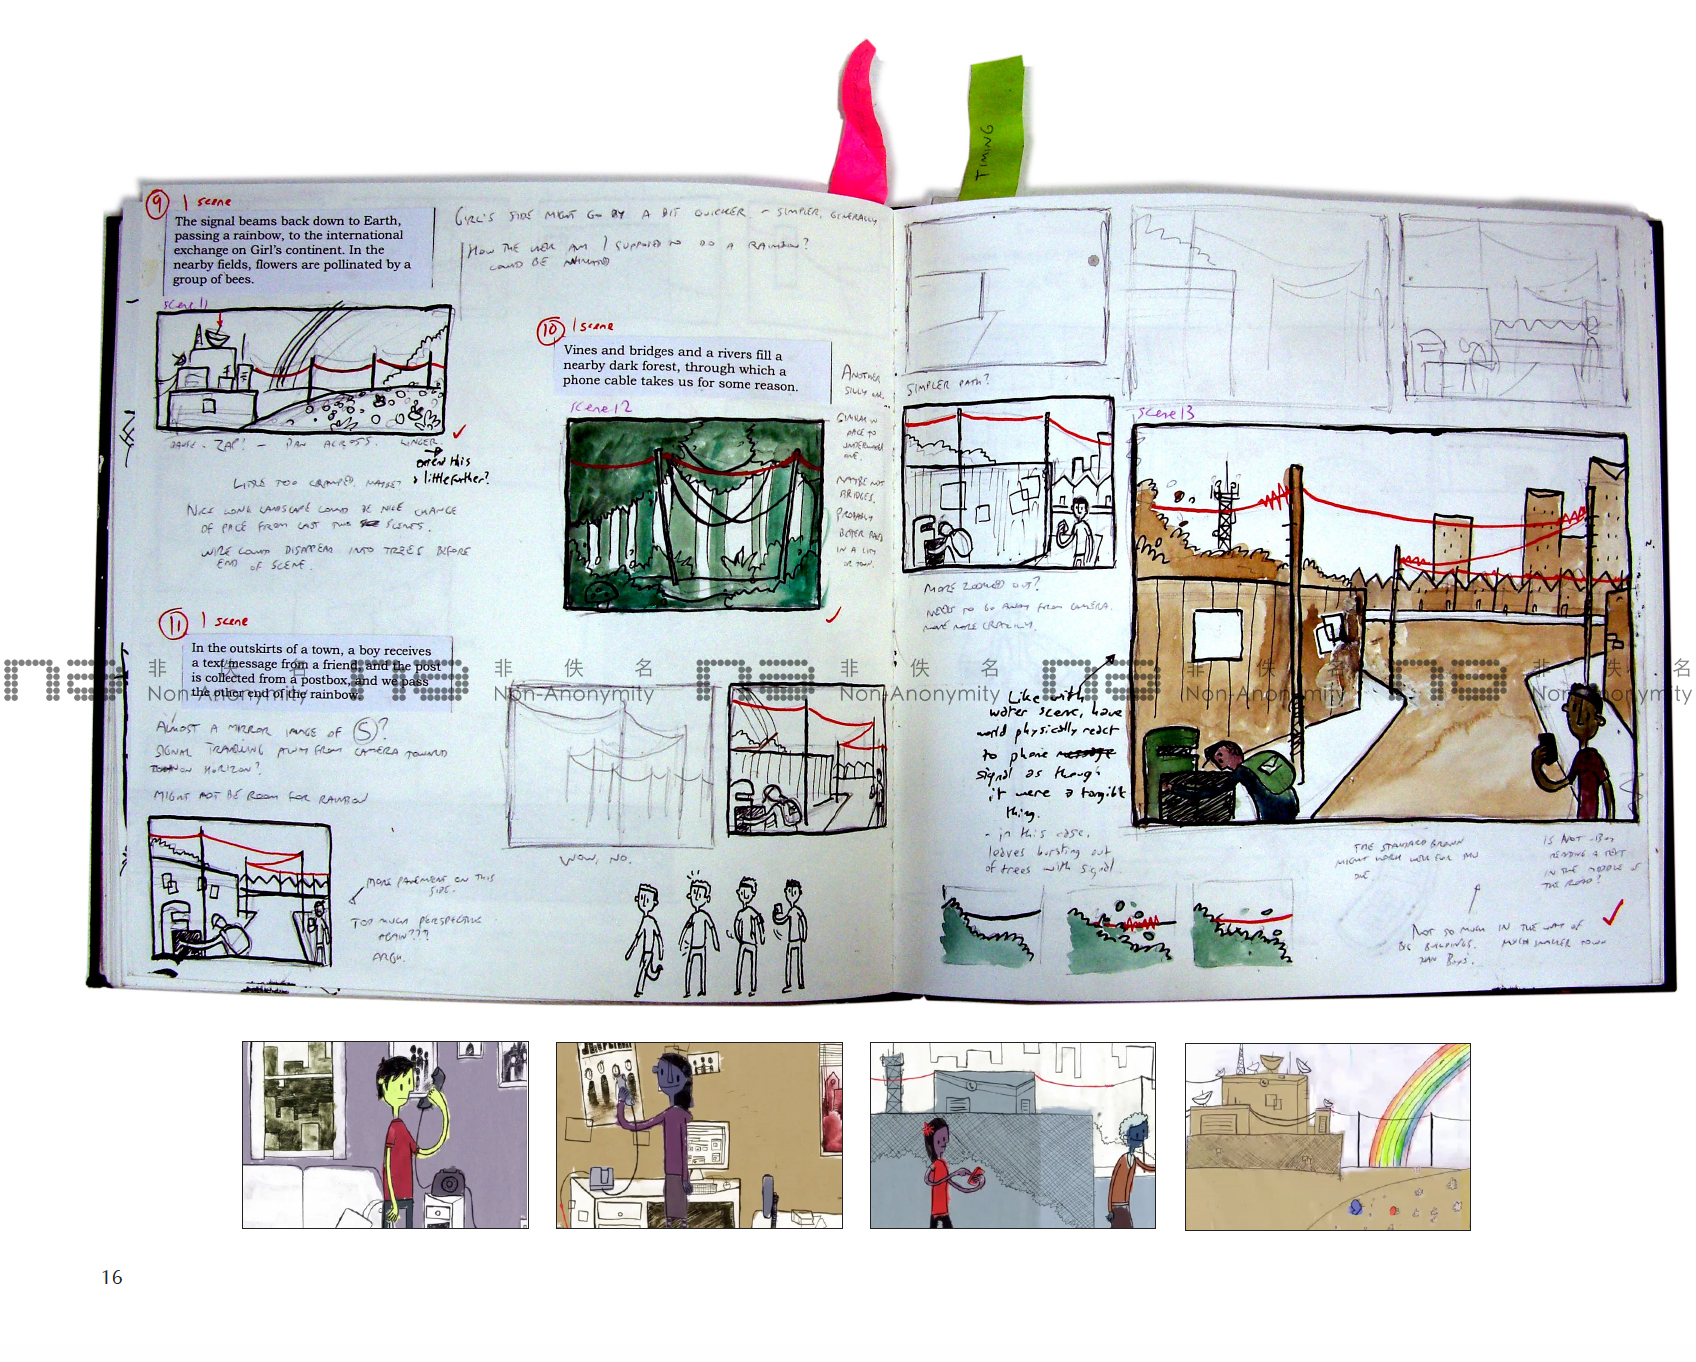 TIMING
9 1 scene
The signal beams back down to Earth,
passing a rainbow, to the international
exchange on Girl's continent. In the
nearby fields, flowers are pollinated by a
group of bees.
GIRL'S SIDE MIGHT GO BY A BIT QUICKER - SIMPLER, GENERALLY
HOW THE HECK AM I SUPPOSED TO DO A RAINBOW?
COULD BE
scene 11
PAUSE - ZAP! - PAN ACROSS. LINGER.
extend this
little further?
LITTLE TOO CRAMPED, MAYBE?
NICE LONG LANDSCAPE COULD BE NICE CHANGE
OF PACE FROM LAST TWO SCENES.
WIRE COULD DISAPPEAR INTO TREES BEFORE
END OF SCENE.
10 1 scene
Vines and bridges and a rivers fill a
nearby dark forest, through which a
phone cable takes us for some reason.
scene 12
ANOTHER
SILLY ONE.
SIMILAR IN
PACE TO
UNDERWATER
ONE.
MAYBE NOT
BRIDGES.
PROBABLY
BETTER
IN A
OR TOWN.
11 1 scene
In the outskirts of a town, a boy receives
a text message from a friend, and the post
is collected from a postbox, and we pass
the other end of the rainbow.
ALMOST A MIRROR IMAGE OF 5?
SIGNAL TRAVELLING AWAY FROM CAMERA TOWARD
HORIZON?
MIGHT NOT BE ROOM FOR RAINBOW
MORE PAVEMENT ON THIS
SIDE.
TOO MUCH PERSPECTIVE
AGAIN???
ARGH.
WOW, NO.
SIMPLER PATH?
MORE ZOOMED OUT?
NEEDS TO GO AWAY FROM CAMERA.
MOVE MORE CRAZILY.
scene 13
Like with
water scene, have
world physically react
to phone message
signal as though
it were a tangible
thing.
- in this case,
leaves bursting out
of trees with signal
THE STANDARD BROWN
MIGHT WORK WELL FOR THIS
ONE.
IS NOT BOY
READING A TEXT
IN THE MIDDLE OF
THE ROAD?
NOT SO MUCH IN THE WAY OF
BIG BUILDINGS. MUCH SMALLER TOWN
THAN BOY'S.
na 非佚名 Non-Anonymity
na 非佚名 Non-Anonymity
na 非佚名 Non-Anonymity
na 非佚名 Non-Anonymity
na 非佚名 Non-Anonymity
16